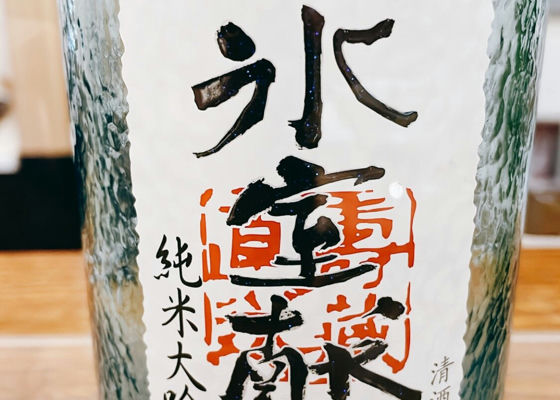 氷室献
純米大吟
清酒